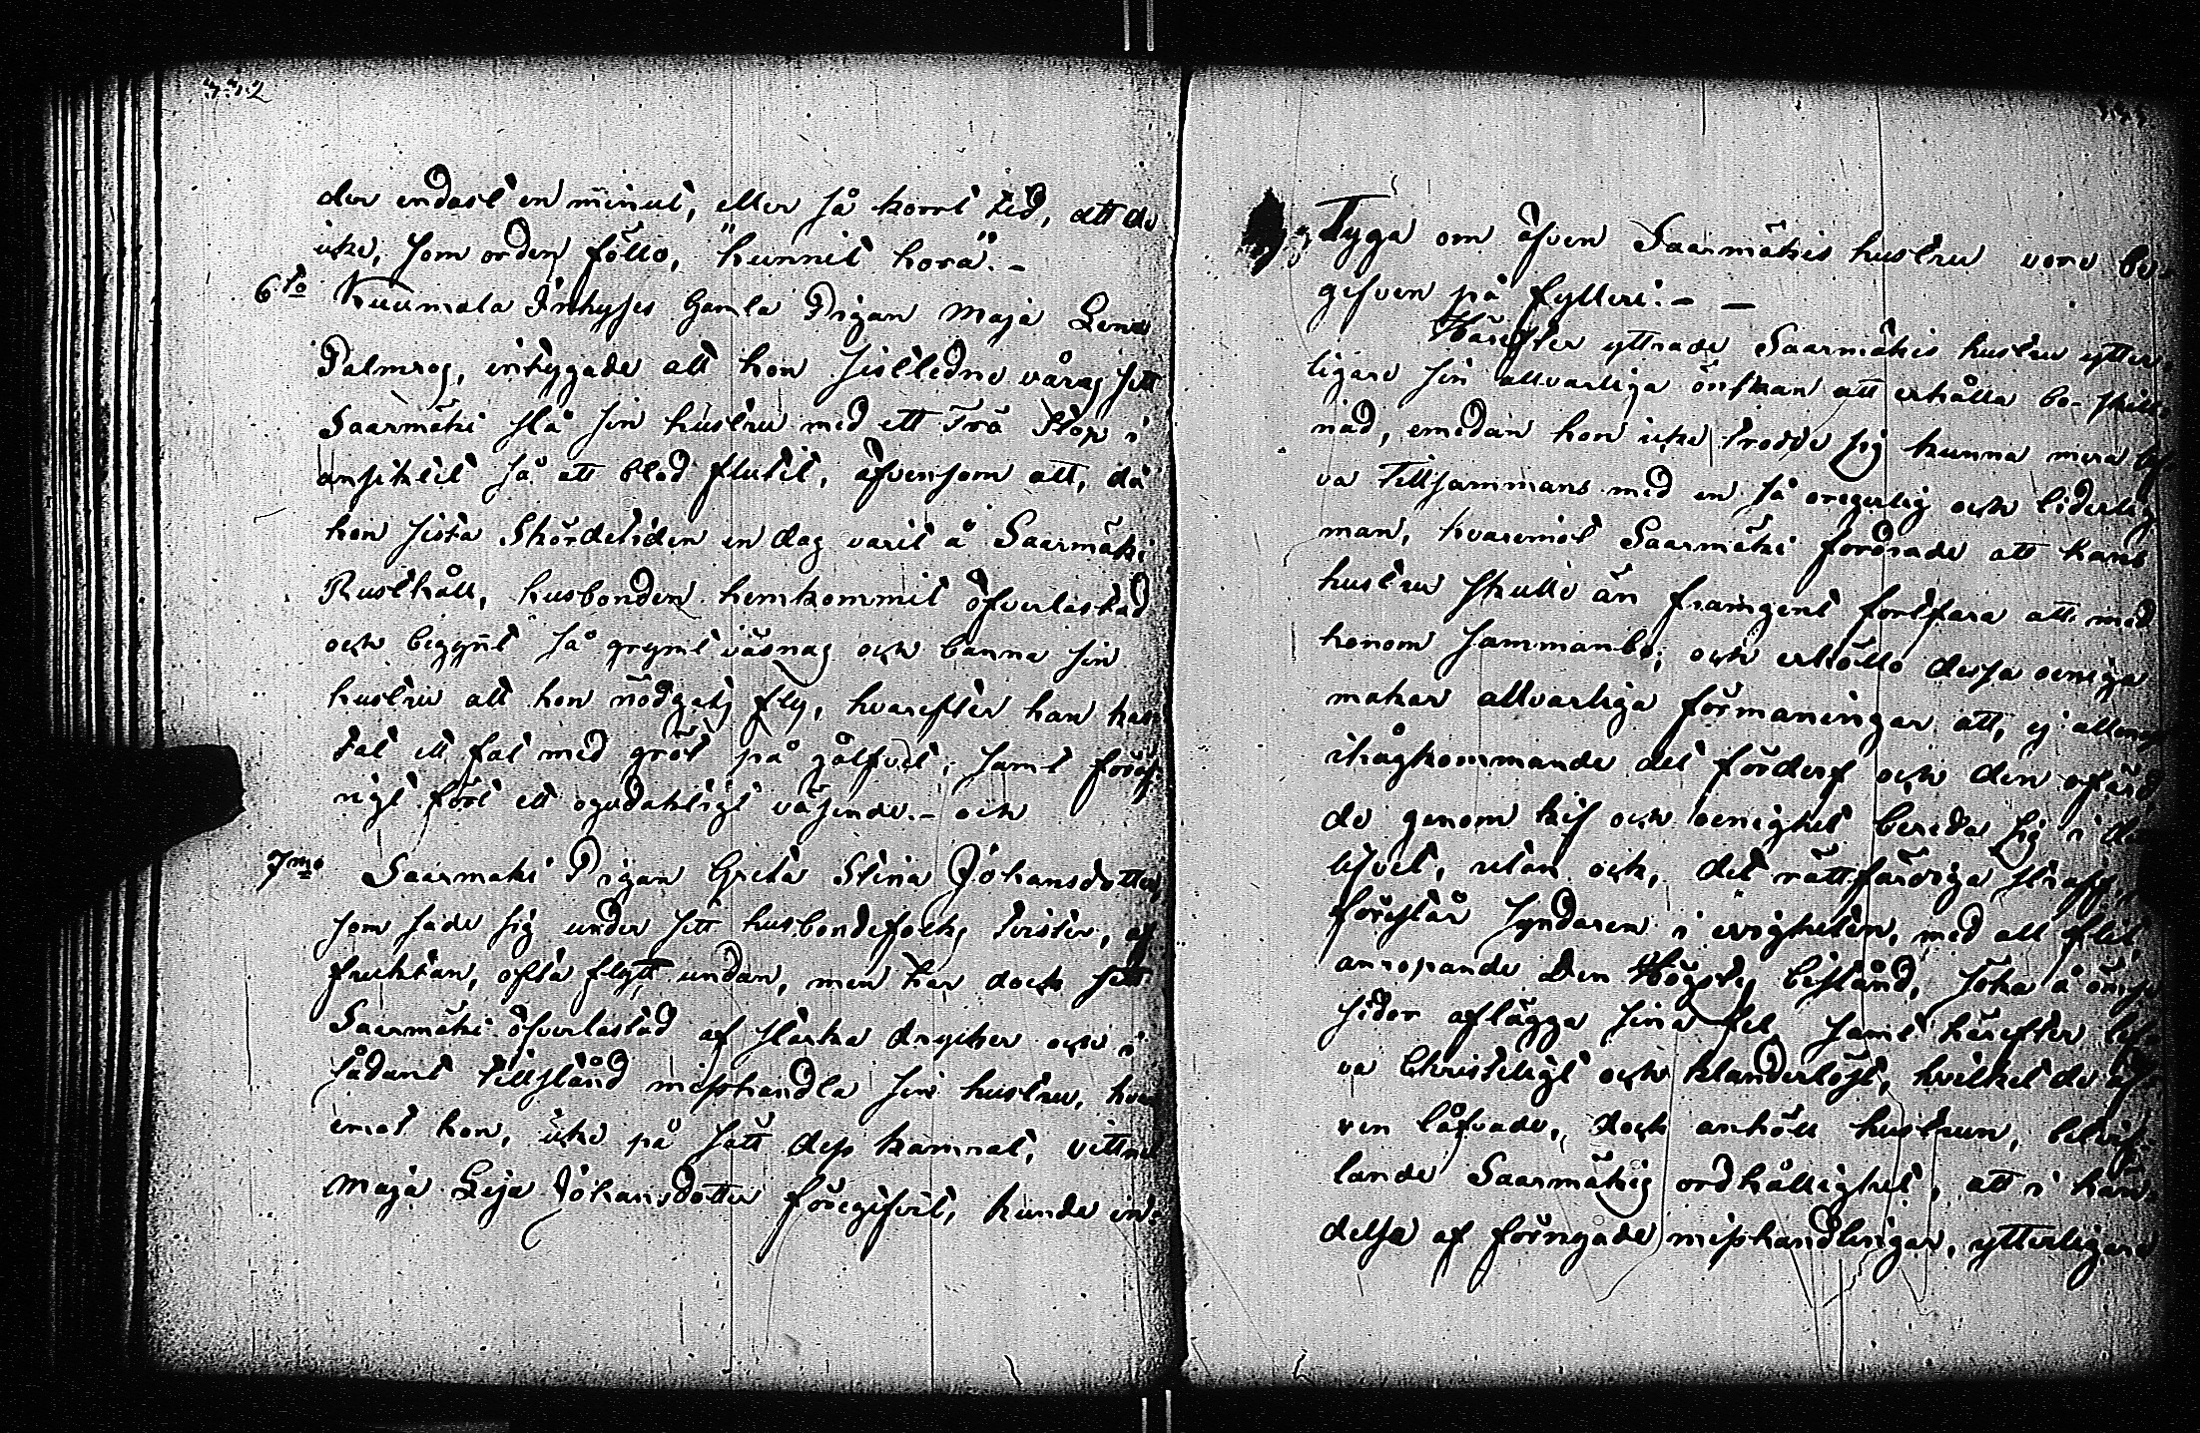 332
der endast en minut, eller så kort tid, att de
icke, som orden föllo, "hunnit hora".-
6to Kuumola Inhyses Gamla Pigan Maja Lena
Palmros, intygade att hon sistledne våras sett
Saarmäki slå sin hustru med ett Trä Stop i
ansiktet så att blod flutit, äfvensom att, då
hon sista Skördetiden en dag varit å Saarmäki
Rusthåll, husbonden hemkommit öfverlastad
och begynt så grymt väsnas och banna sin
hustru att hon nödgats fly, hvarefter han kas-
tat ett fat med gröt på gålfvet, samt föröf-
rigt fört ett ogudaktigt väsende.- och
7mo Saarmaki Pigan Greta Stina Johansdotter,
som sade sig under sitt husbondefolks tvister, af
fruktan, ofta flytt undan, men har dock sett
Saarmäki öfverlastad af starka drycker och i
sådant tillstånd misshandla sin hustru, hvar
emot hon, icke på sätt dess kamrat, vittnet
Maja Lisa Johansdotter föregifvit, kunde in-
tyga om äfven Saarmäkis hustru vore be-
gifven på fylleri.- -
Härefter yttrade Saarmäkis hustru ytter-
ligare sin allvarliga önskan att erhålla bo-skill-
nad, emedan hon icke trodde sig kunna mera lef-
va tillsammans med en så oregerlig och liderlig
man, hvaremot Saarmäki fordrade att hans
hustru skulle än framgent fortfara att med
honom sammanbo; och erhöllo dessa oeniga
makar allvarliga förmaningar att, ej allenast
ihågkommande det förderf och den ofärd
de genom kif och oenighet bereda sig i det
lifvet, utan och, det rättfärdiga straff,
förestår syndaren i evigheten, med all flit,
anropande Den Högstes bistånd, söka å ömse
sidor aflägga sina fel samt härefter lef-
va Christeligt och klanderlöst, hvilket de äf-
ven låfvade, dock anhöll hustrun, betvif-
lande Saarmäkis ordhållighet, att i hän-
delse af förnyade misshandlingar, ytterligare